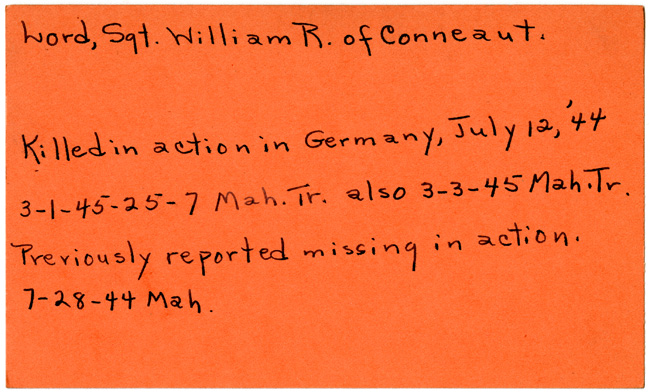 Lord, Sgt. William R. of Conneaut.
Killed in action in Germany, July 12, '44
3-1-45-25-7 Mah. Tr. also 3-3-45 Mah. Tr.
Previously reported missing in action.
7-28-44 Mah.